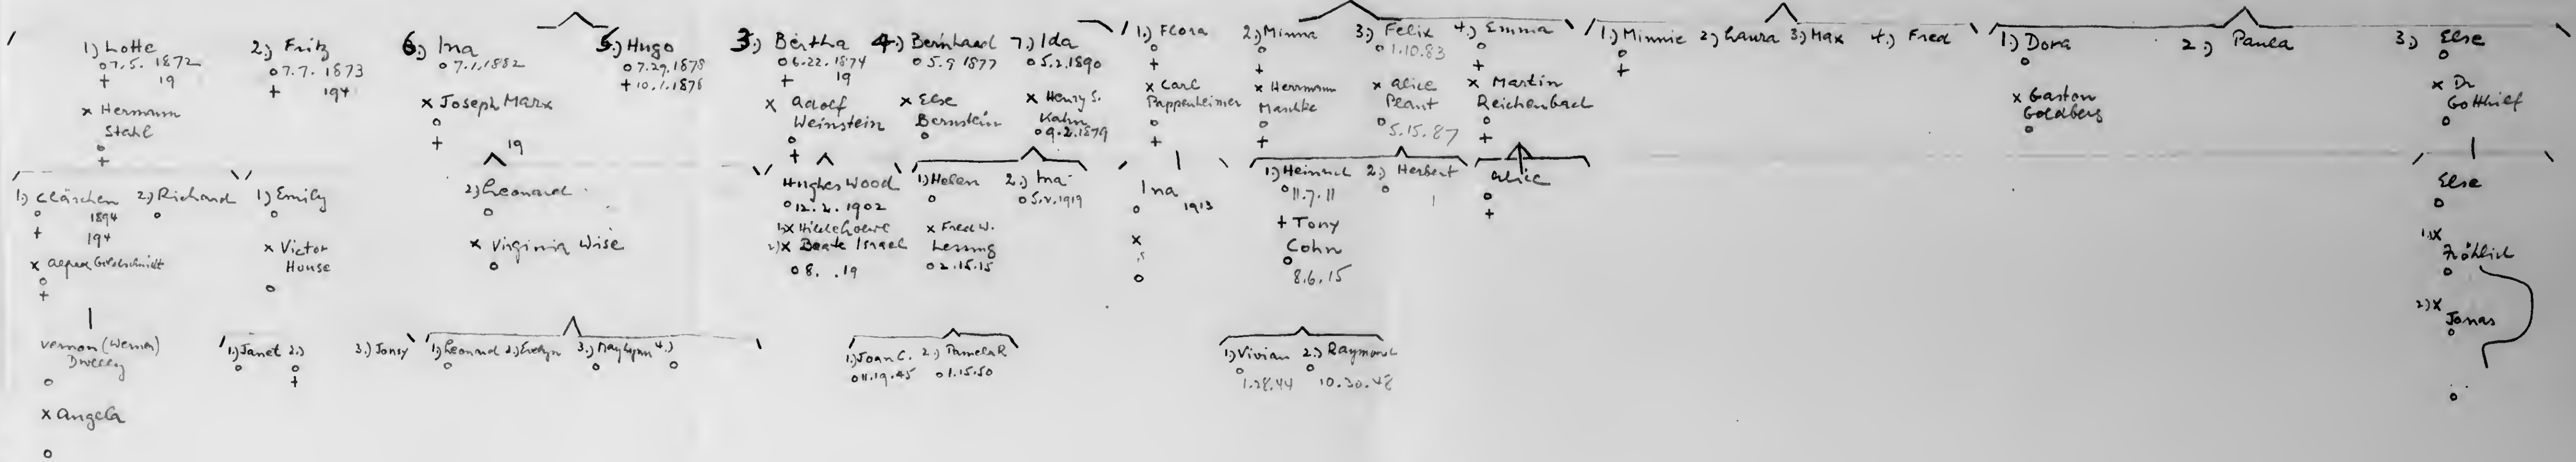 1) Lotte
o 7.5. 1872
+ 19
x Hermann
Stahl
o
+
2.) Fritz
o 7.7. 1873
+ 194
6.) Ina
o 7.1.1882
x Joseph Marx
o
+ 19
5.) Hugo
o 7.29.1878
+ 10.1.1878
3.) Bertha
o 6.22.1874
+ 19
x Adolf
Weinstein
o
+
4.) Bernhard
o 5.9 1877
x Else
Bernstein
o
7.) Ida
o 5.2.1890
x Henry S.
Kahn
o 9.2.1879
1.) Flora
o
+
x Carl
Pappenheimer
o
+
2.) Minna
o
+
x Hermann
Maschke
o
+
3.) Felix
o 1.10.83
x Alice
Plaut
o 5.15.87
4.) Emma
o
+
x Martin
Reichenbach
o
+
1.) Minnie 2.) Laura 3.) Max 4.) Fred
o
+
1.) Dora
o
x Gaston
Goldberg
o
2.) Paula
3.) Else
o
x Dr
Gotthief
o
1.) Clärchen
o 1894
+ 194
x Alfred Goldschmidt
o
+
2.) Richard
o
1.) Emily
o
x Victor
House
o
2) Leonard
o
x Virginia Wise
o
Hughes Wood
o 12.2.1902
1.) x
2) x Beate Israel
o 8. .19
1) Helen
o
x Fred W.
Lessing
o 2.15.15
2.) Ina
o 5.2.1919
Ina
o 1913
x
o
1.) Heinrich
o 11.7.11
+ Tony
Cohn
o
8.6.15
2.) Herbert
o
Alice
o
+
Else
o
1.) x
Fröhlich
o
2) x
Jonas
o
o
Vernon (Werner)
Dwelly
o
x Angela
o
1.) Janet 2.)
o o
+
3.) Jonsy
1.) Leonard 2.) Evelyn 3.) May Lynn 4.)
o o o
1.) Joan C. 2.) Pamela R
o 11.19.45 o 1.15.50
1.) Vivian 2.) Raymond
o o
1.28.44 10.30.48